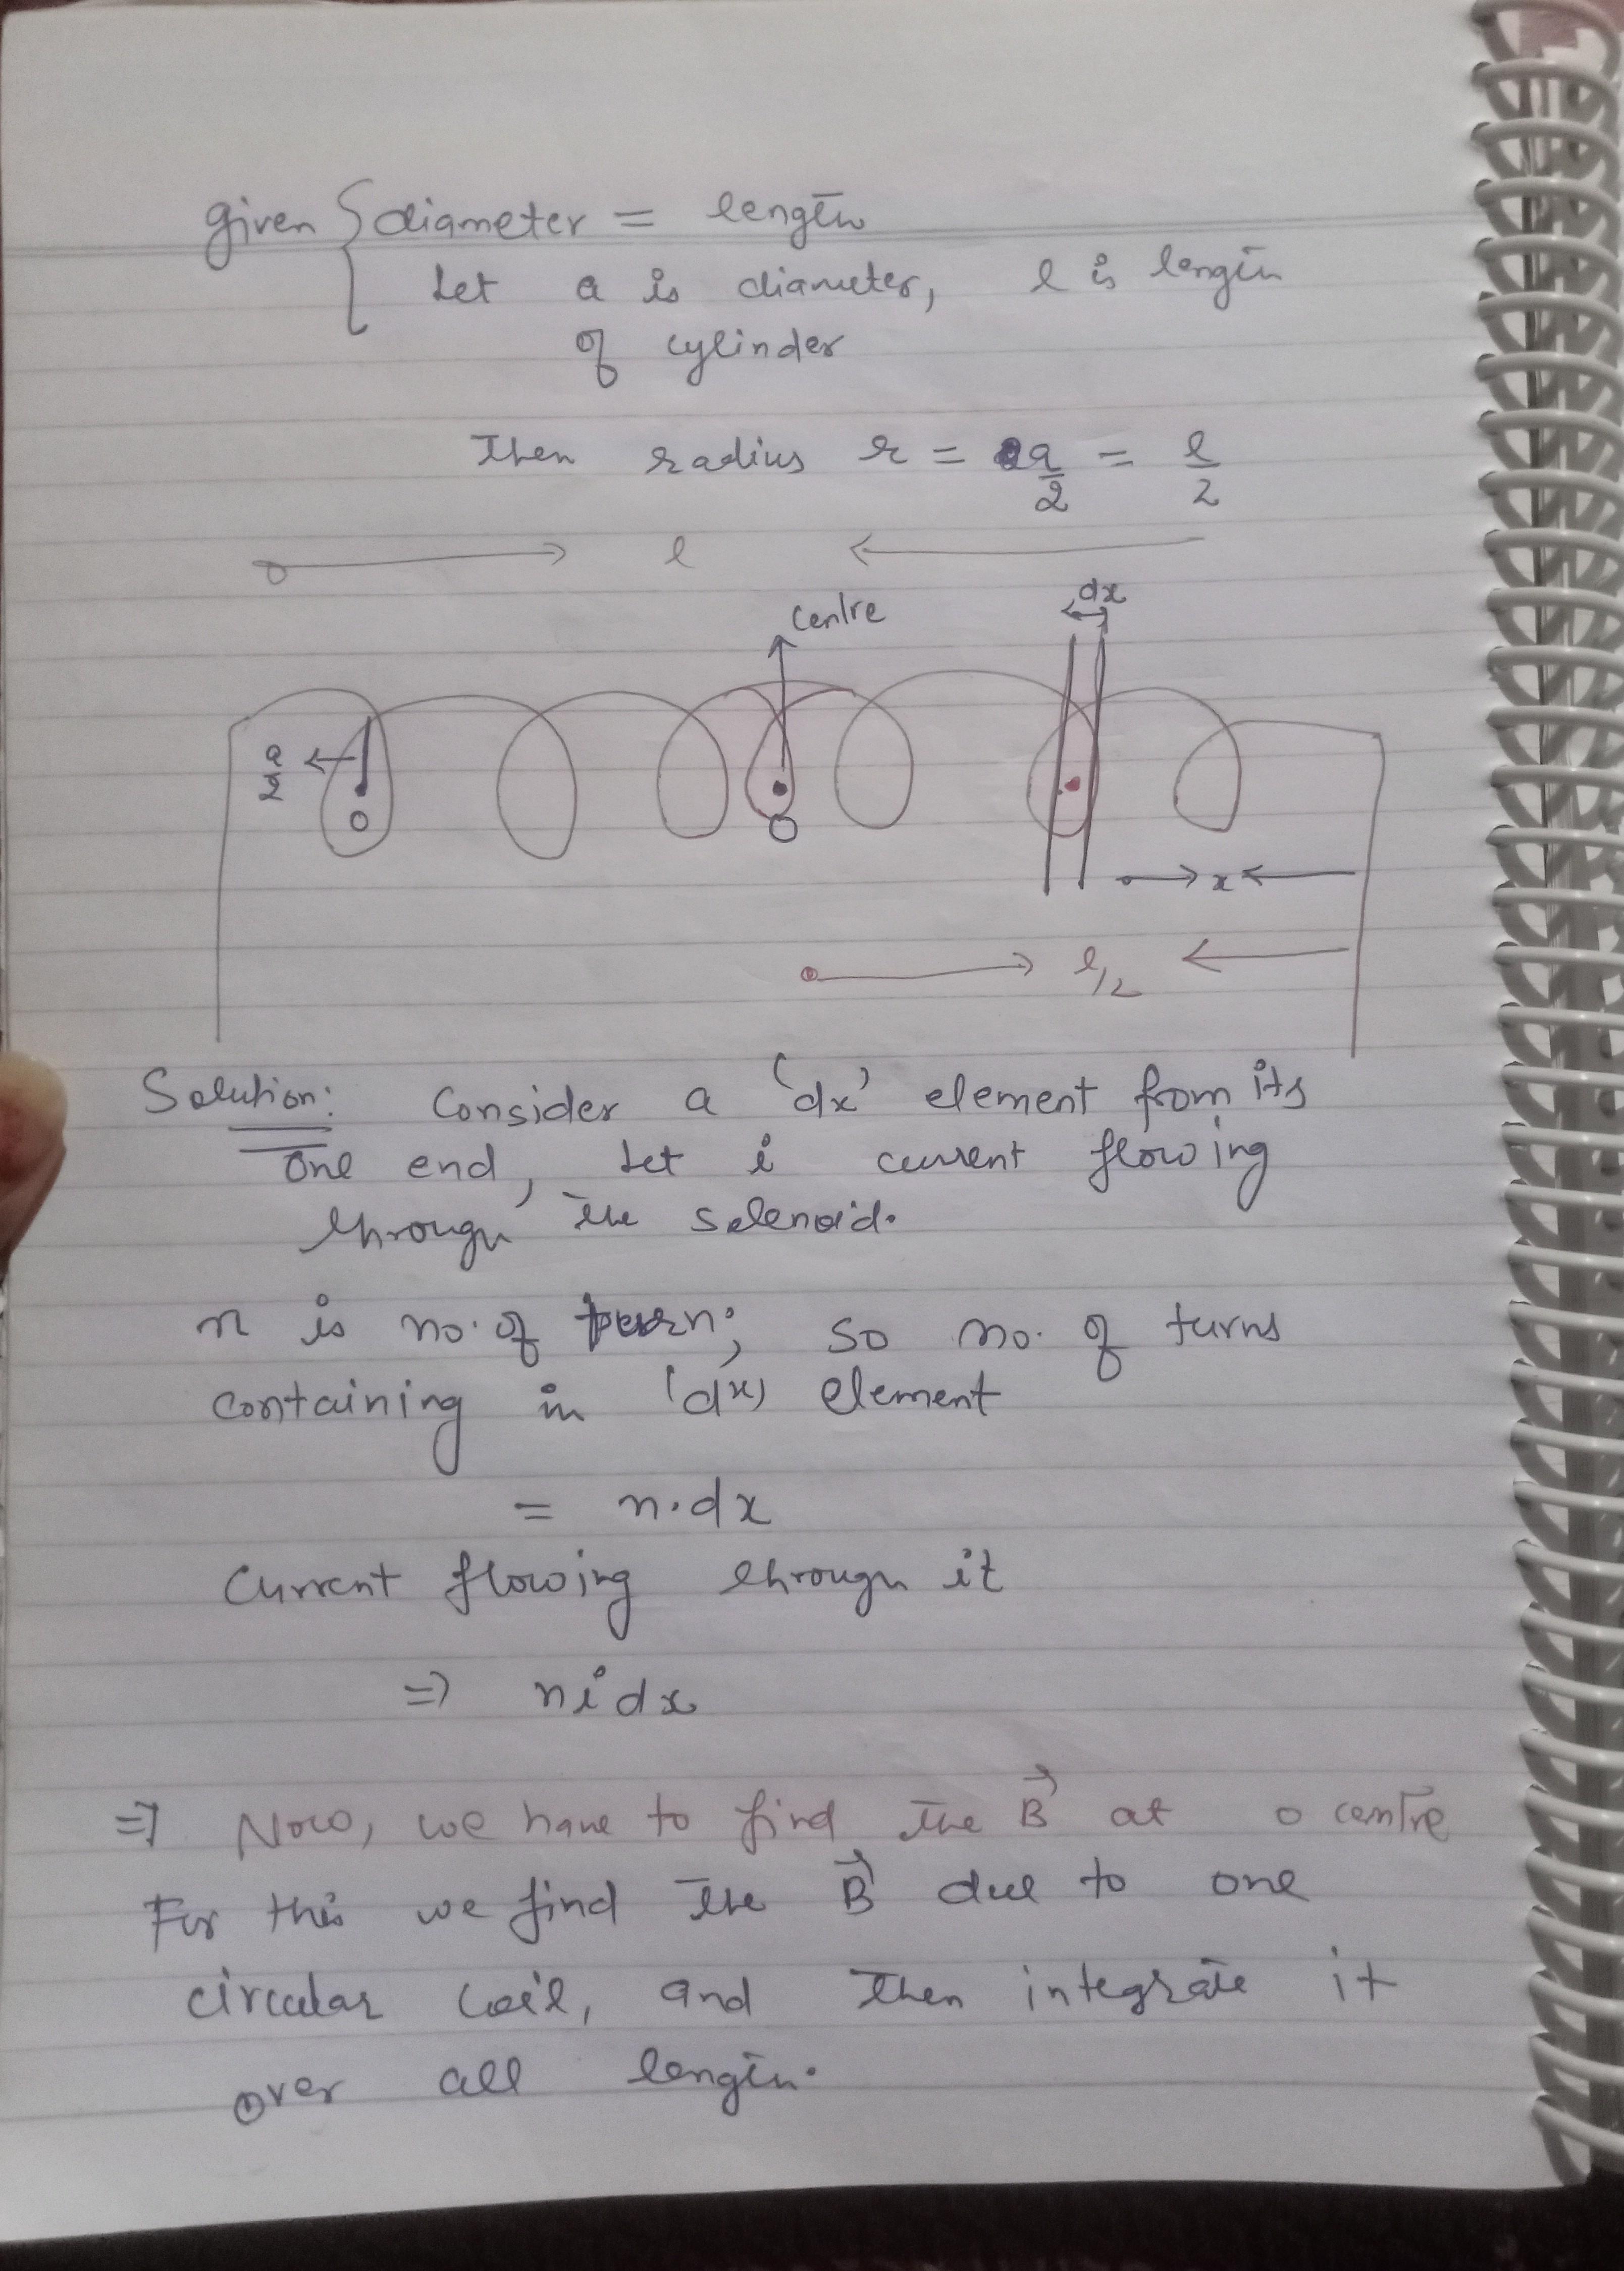 given { diameter = length
Let a is diameter, l is length
of cylinder
Then radius r = a/2 = l/2
l
dx
Centre
a/2
O
O
x
l/2
Solution: Consider a 'dx' element from its
one end, Let i current flowing
through the solenoid.
n is no. of turn; so no. of turns
containing in 'dx' element
= n.dx
Current flowing through it
=> nidx
=> Now, we have to find the B⃗ at o centre
For this we find the B⃗ due to one
circular coil, and then integrate it
over all length.